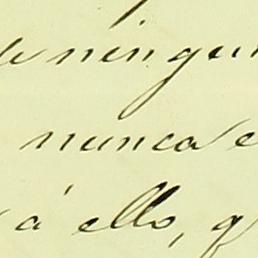 de ningun
nunca e
á ello, q